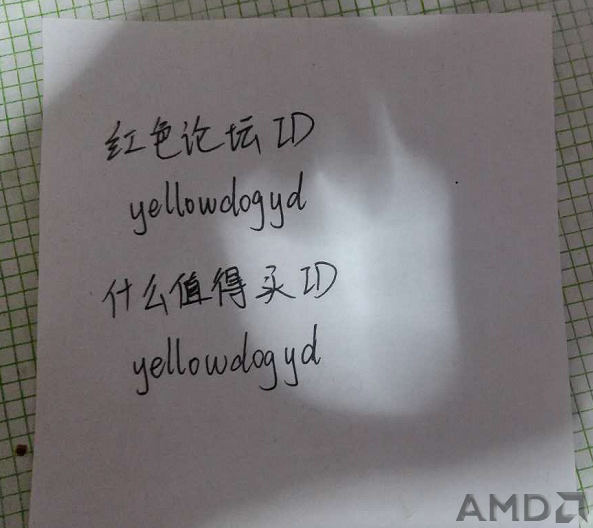 红色论坛ID
yellowdogyd
什么值得买ID
yellowdogyd
AMD